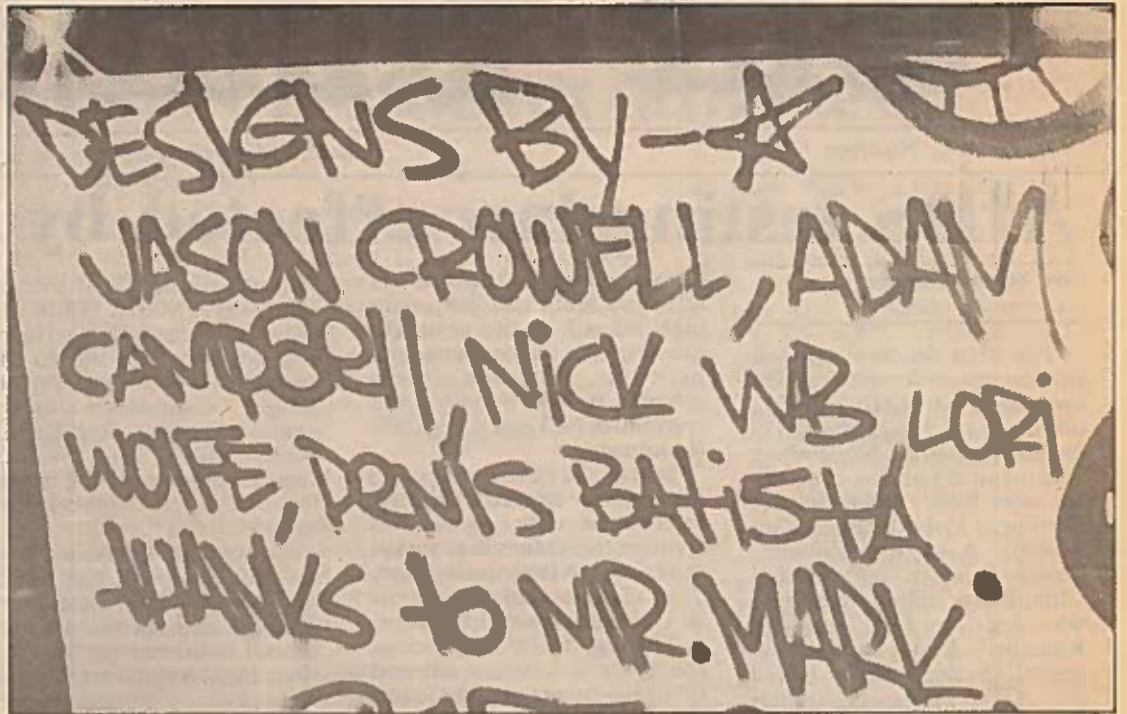 DESIGNS BY -☆
JASON CROWELL, ADAM
CAMPBEll, NiCK WB LORi
WOlFE, DENiS BATiSTA
tHANKS to MR. MARK